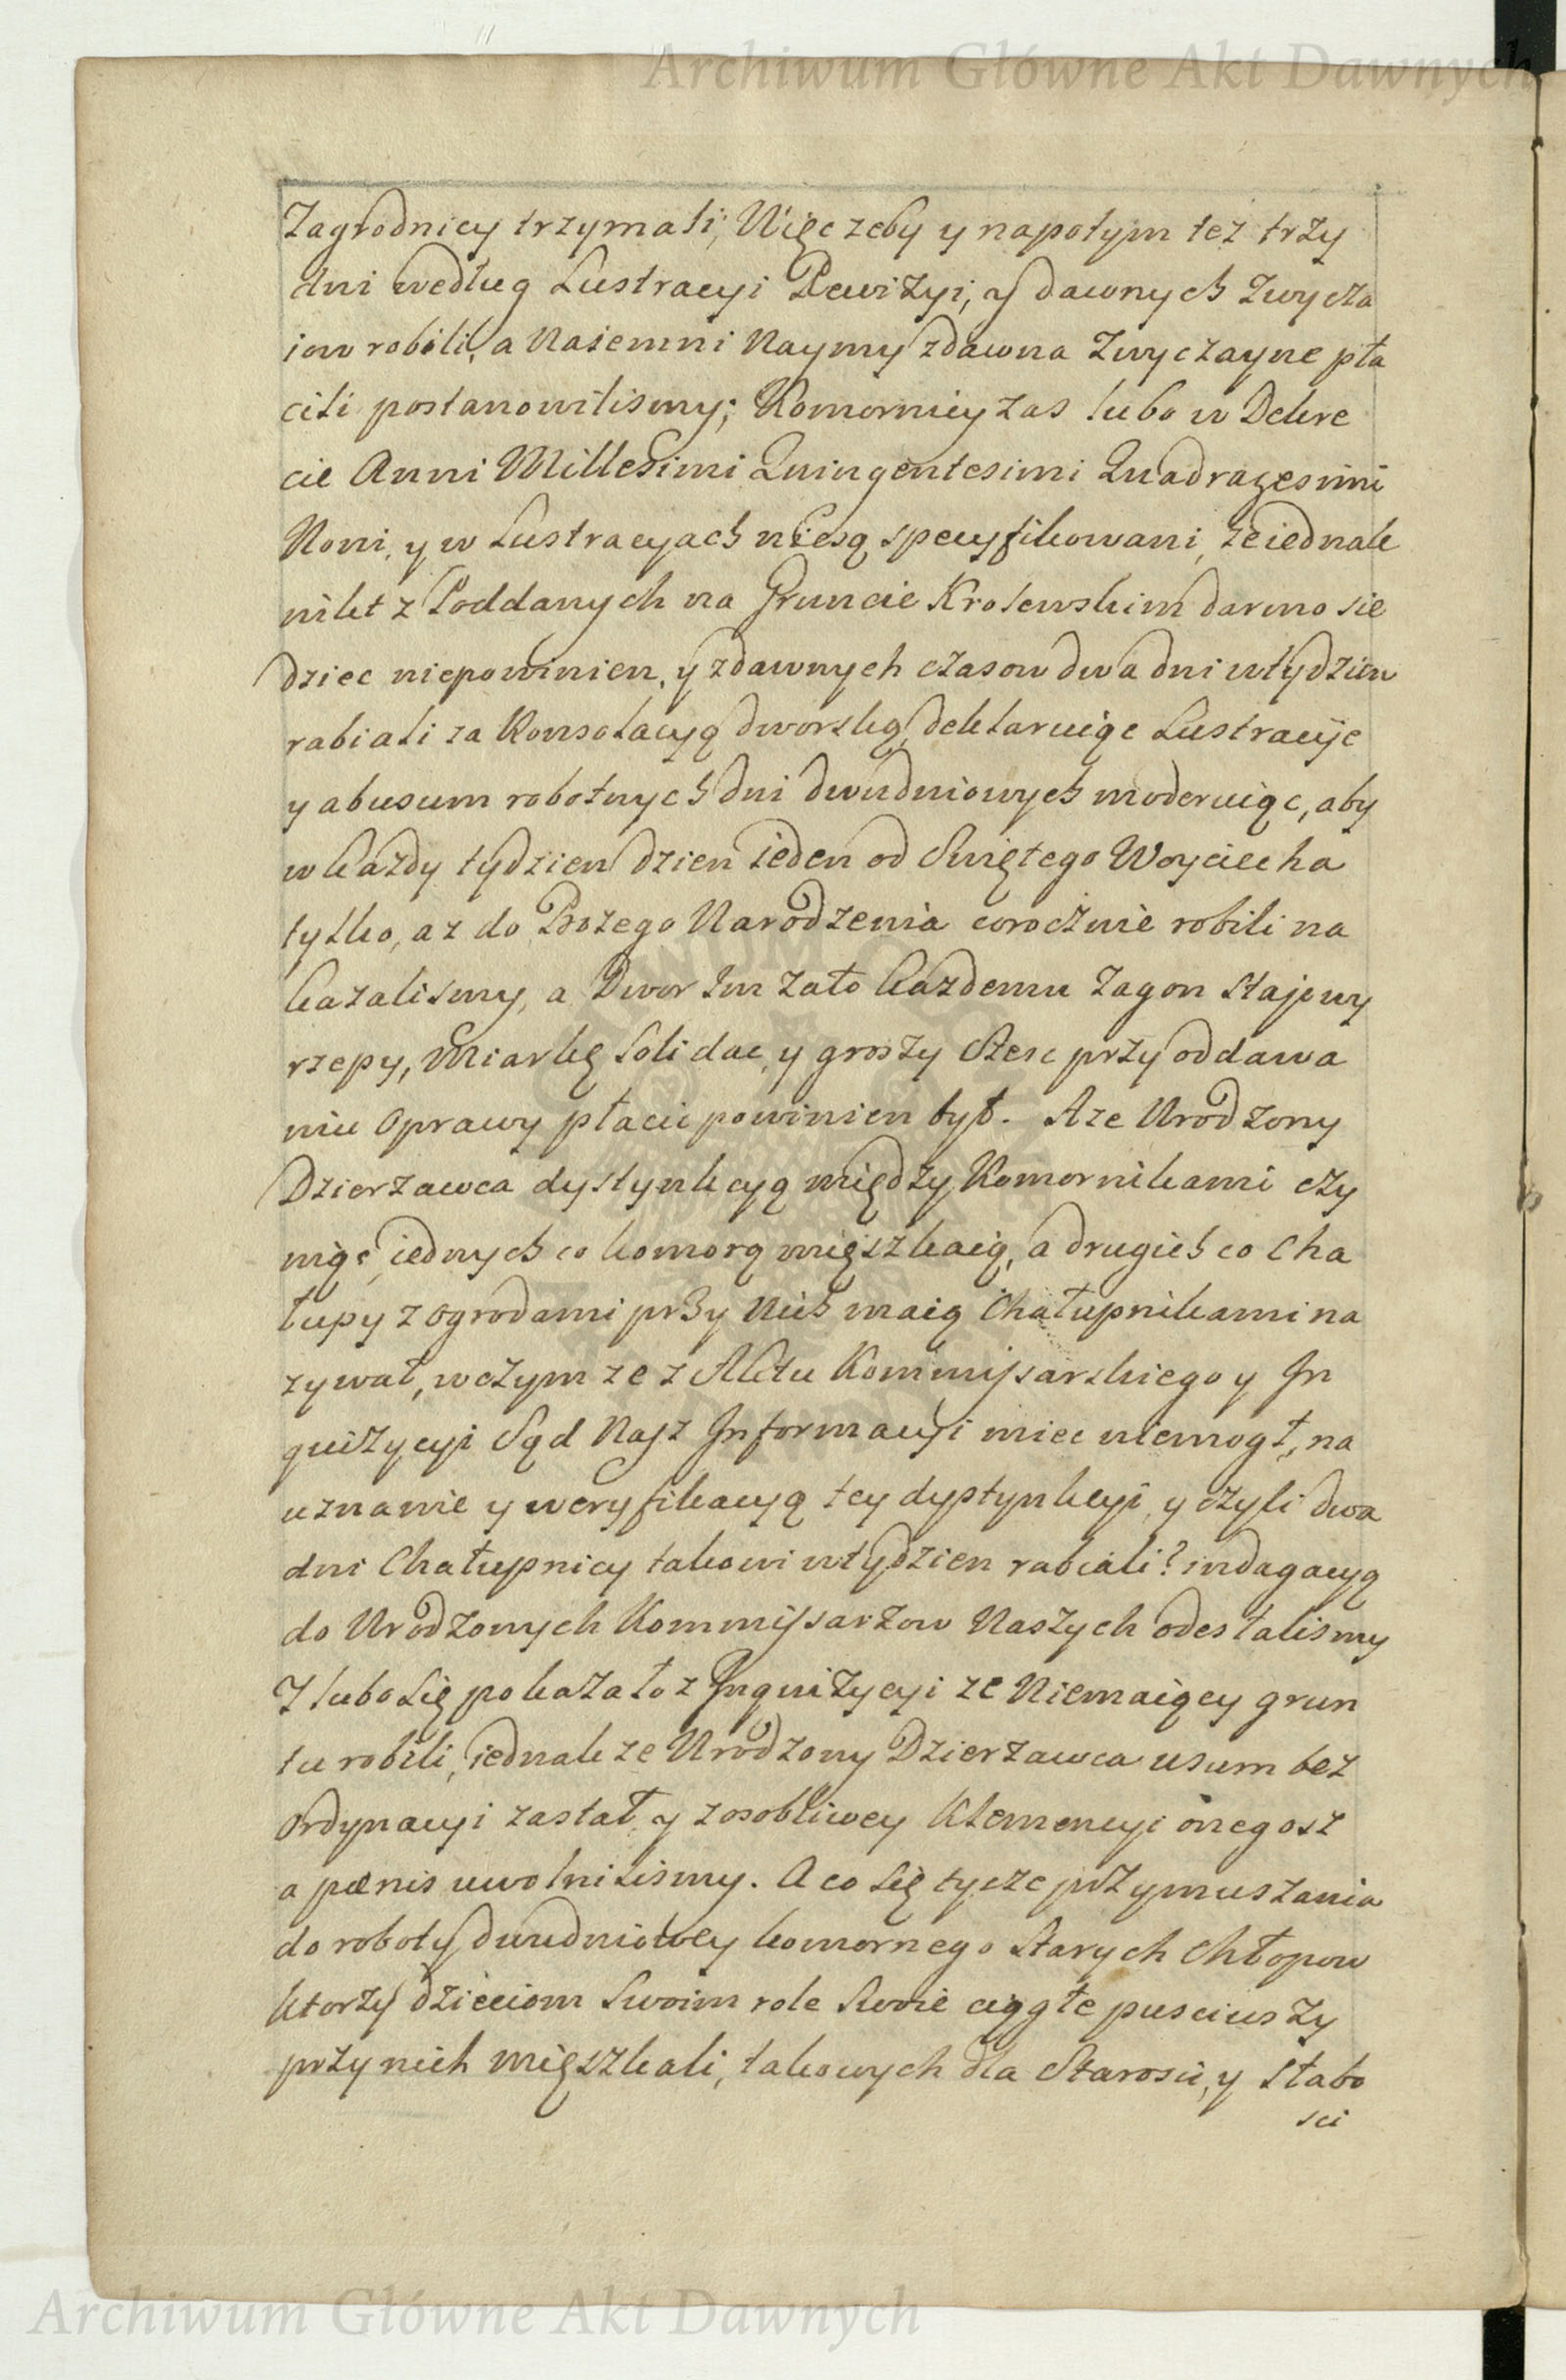 Archiwum Główne Akt Dawnych
Zagrodnicy trzymali; Więc zeby y napotym tez trzy
dni według Lustracyi Rewizyi, y dawnych Zwycza
iow robili, a Naiemni Naymy zdawna Zwyczayne pła
cili postanowilismy; Komornicy zas lubo w Dekre
cie Anni Millesimi Quingentesimi Quadragesimi
Noni, y w Lustracyach niesą specyfikowani, ze iednak
nikt z Poddanych na Gruncie Krolewskim darmo sie
dziec niepowinien, y zdawnych czasow dwa dni wtydzien
rabiali za Konsolacyą dworską, deklaruiąc Lustracyie
y abusum robotnych dni dwudniowych moderuiąc, aby
w kazdy tydzien dzien ieden od Swiętego Woyciecha
tylko, az do Bozego Narodzenia corocznie robili na
kazalismy, a Dwor Im zato kazdemu Zagon Stajowy
rzepy, Miarkę Soli dac, y groszy Szesc przy oddawa
niu Oprawy płacic powinien był. Aze Urodzony
Dzierzawca dystynkcyą między Komornikami czy
niąc, iednych co komorą mięszkaią, a drugich co Cha
łupy z Ogrodami przy Nich maią Chałupnikami na
zywał, wczym ze z Aktu Kommissarskiego y In
quizycyi Sąd Nasz Informacyi miec niemogł, na
uznanie y weryfikacyą tey dystynkcyi, y czyli dwa
dni Chałupnicy takowi wtydzien rabiali? indagacyą
do Urodzonych Kommissarzow Naszych odesłalismy
I lubo się pokazało z Inquizycyi ze Niemaiący grun
tu robili, iednak ze Urodzony Dzierzawca usum bez
Ordynacyi zastał, y zosobliwey Klemencyi onegosz
a pænis uwolnilismy. A co się tycze przymuszania
do roboty dwudniowey komornego Starych Chłopow
ktorzy dzieciom Swoim role Swoie ciągłe pusciwszy
przy nich mięszkali, takowych dla Starosci, y Słabo
sci
Archiwum Główne Akt Dawnych